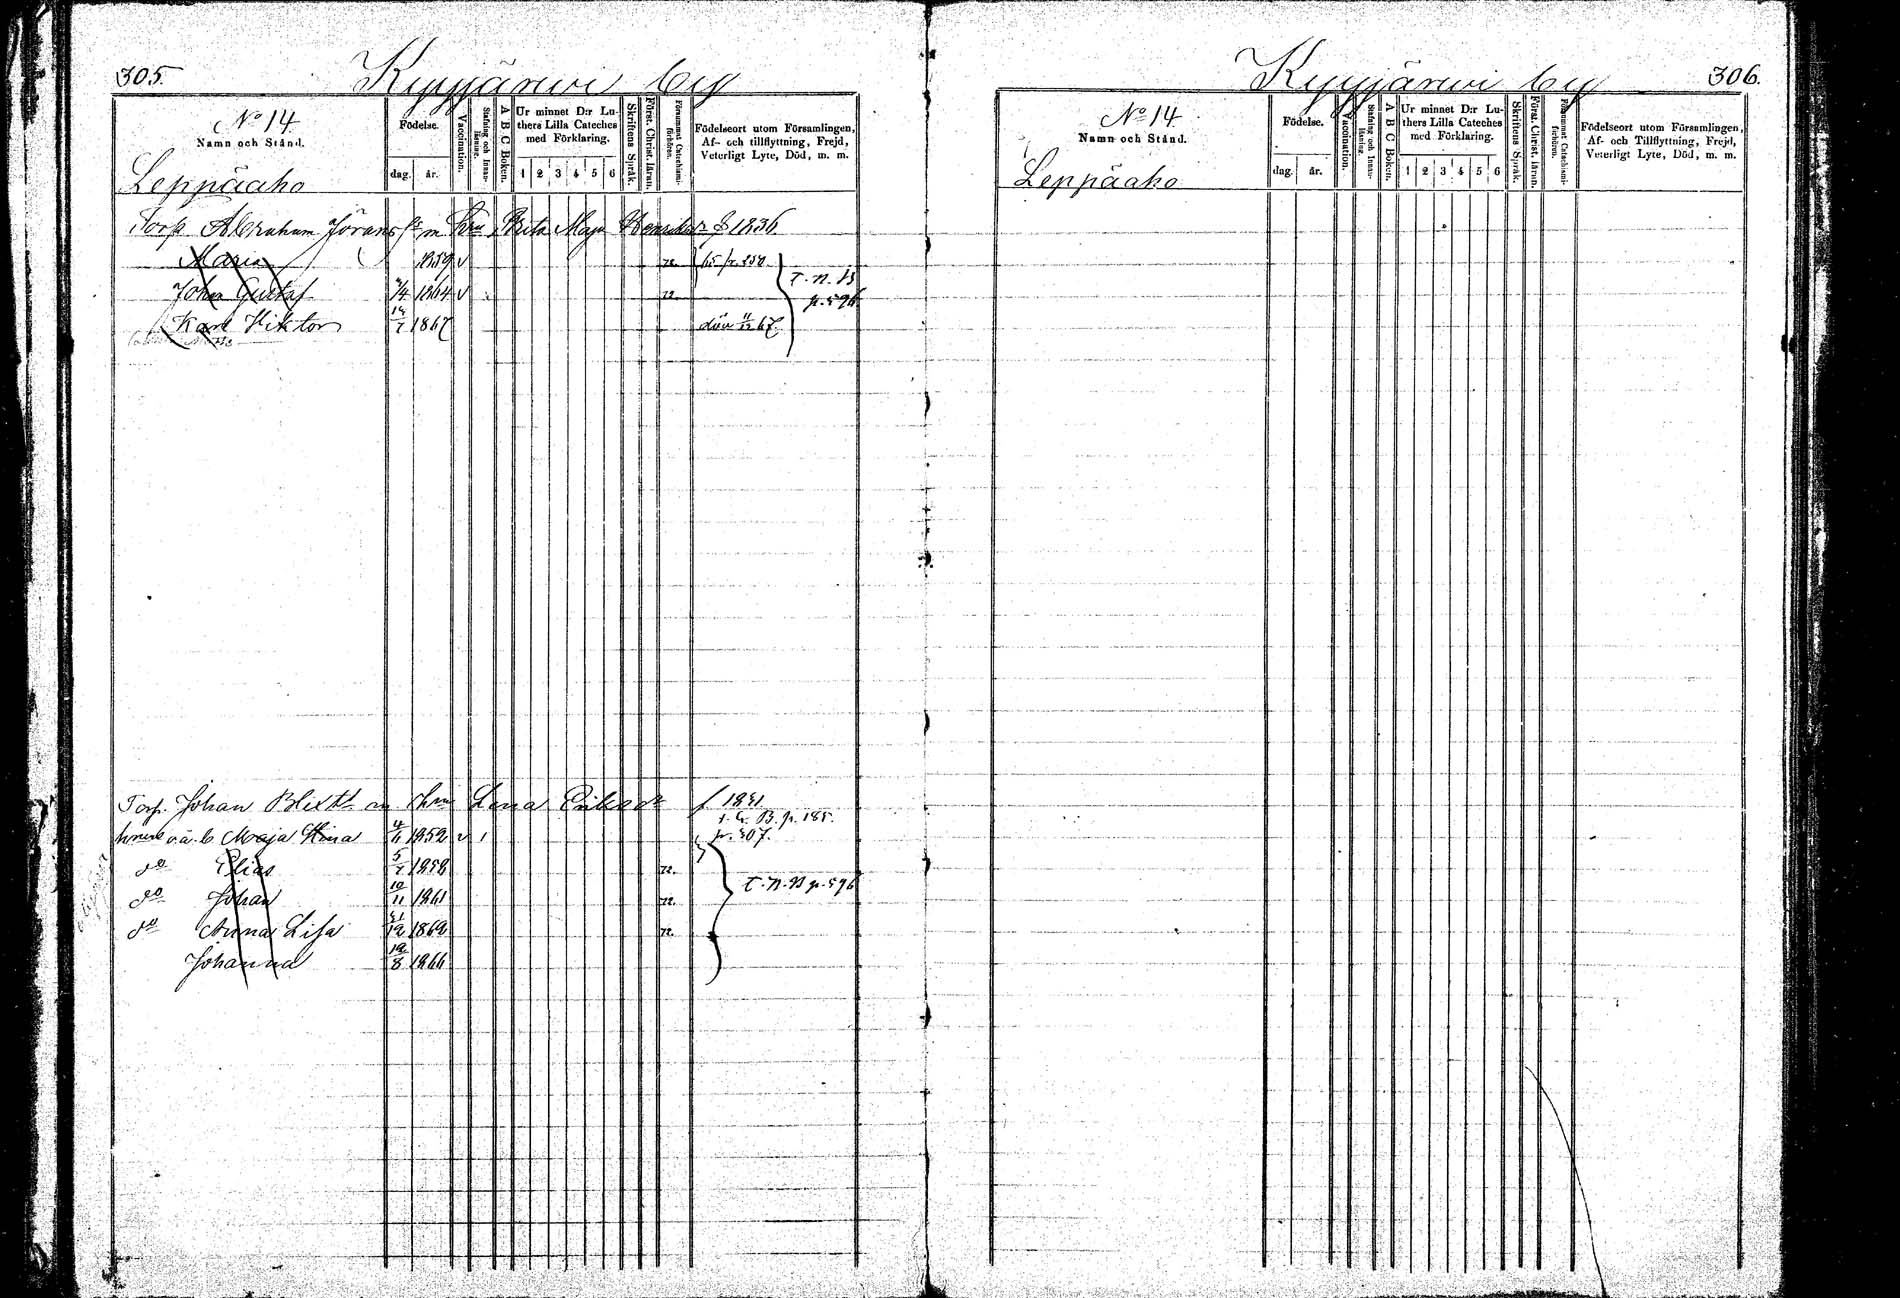 305.
Kyyjärwi by
No 14
Namn och Stånd.
Födelse.
dag. år.
Vaccination.
Stafning och Innanläsning.
A B C Boken.
Ur minnet D:r Luthers Lilla Cateches med Förklaring.
1 2 3 4 5 6
Skriftens Språk.
Först. Christ. läran.
Försummat Catechismiförhören.
Födelseort utom Församlingen,
Af- och tillflyttning, Frejd,
Veterligt Lyte, Död, m. m.
Leppäaho
Torp. Abraham Jörans sn m. hru Brita Maja Henriksdr f 1836
Maria 1859 v 72. 65 p. 258
Johan Gustaf 1864 v 72. T. N. B p. 596
Karl Viktor 1867 död 11/12 67.
Torp. Johan Blixt m hru Lena Eriksdr f 1831
t. C. B. p. 185.
hrues o.ä. b Maja Stina 1852 v 1 p. 307.
do Elias 5/7 1858 72.
do Johan 10/11 1861 72. T. N. B p. 596
do Anna Lisa 31/12 1862 72.
Johanna 12/8 1866
306.
Kyyjärwi by
No 14
Namn och Stånd.
Födelse.
dag. år.
Vaccination.
Stafning och Innanläsning.
A B C Boken.
Ur minnet D:r Luthers Lilla Cateches med Förklaring.
1 2 3 4 5 6
Skriftens Språk.
Först. Christ. läran.
Försummat Catechismiförhören.
Födelseort utom Församlingen,
Af- och Tillflyttning, Frejd,
Veterligt Lyte, Död, m. m.
Leppäaho